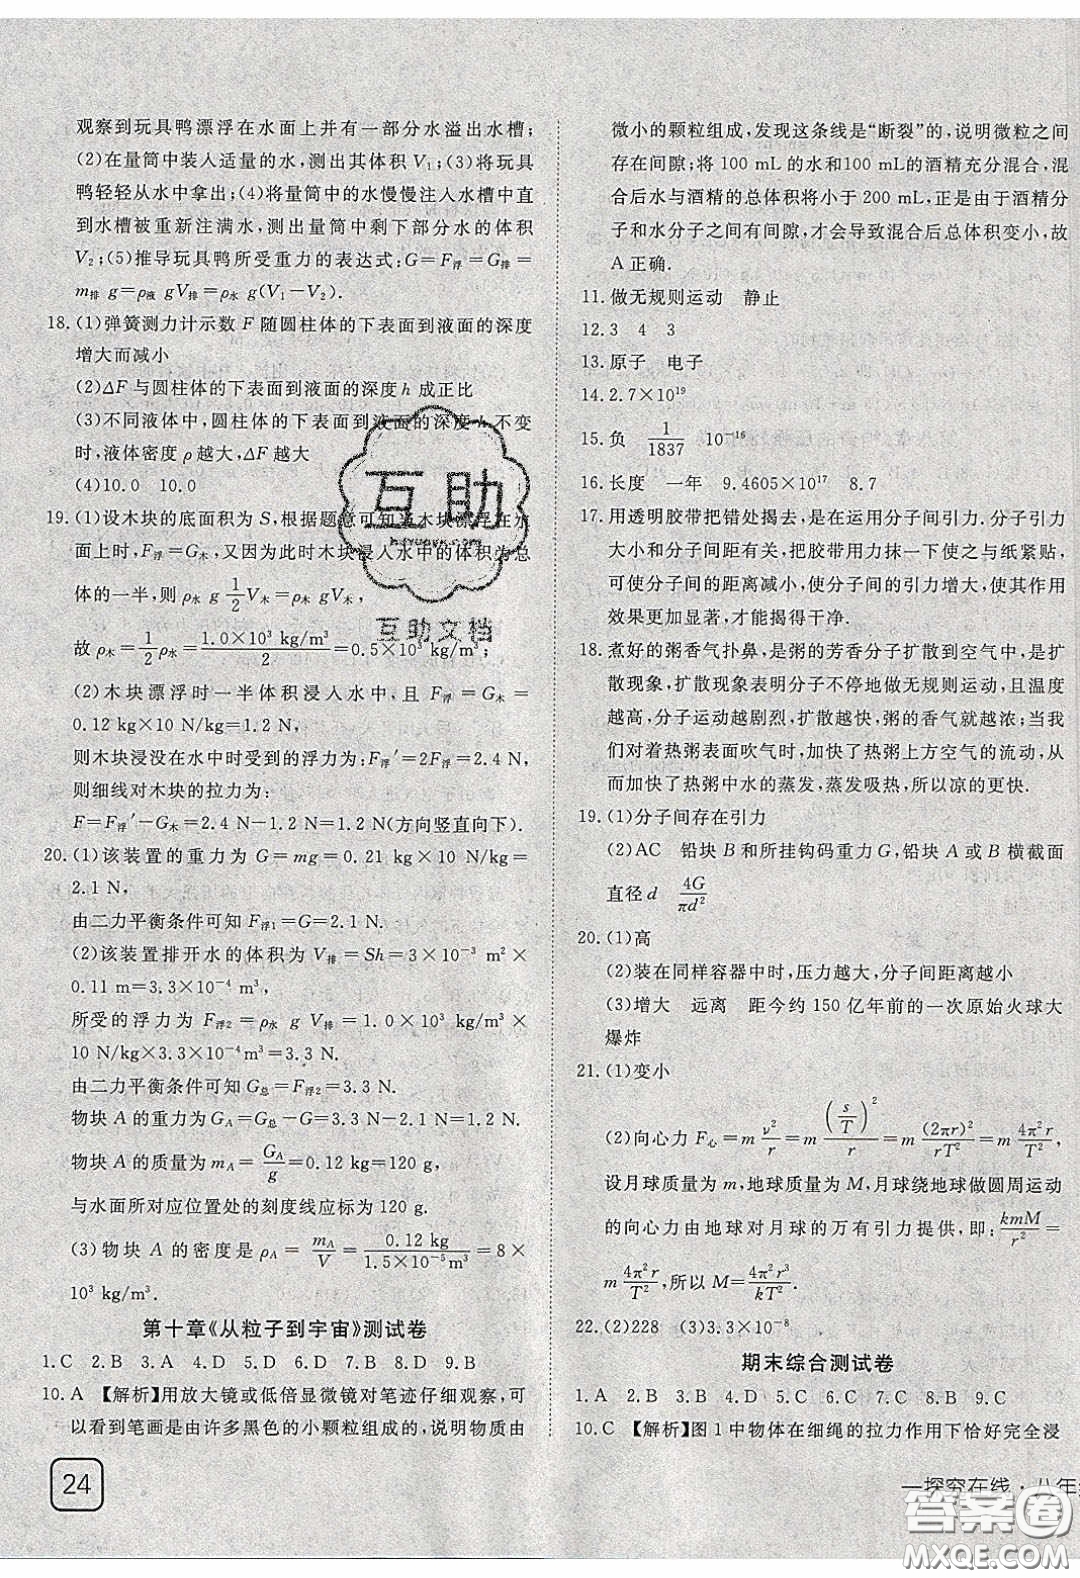 观察到玩具鸭漂浮在水面上并有一部分水溢出水槽;
(2)在量筒中装入适量的水,测出其体积 V₁;(3)将玩具
鸭轻轻从水中拿出;(4)将量筒中的水慢慢注入水槽,直
到水槽被重新注满水,测出量筒中剩下部分水的体积
V₂;(5)推导玩具鸭所受重力的表达式:G=F浮=G排=
m排 g=ρ液 gV排=ρ水 g(V₁-V₂).
18.(1)弹簧测力计示数 F 随圆柱体的下表面到液面的深度
增大而减小
(2)ΔF 与圆柱体的下表面到液面的深度 h 成正比
(3)不同液体中,圆柱体的下表面到液面的深度 h 不变
时,液体密度 ρ 越大,ΔF 越大
(4)10.0 10.0
19.(1)设木块的底面积为 S,根据题意可知当木块漂浮在水
面上时,F浮=G木,又因为此时木块浸入水中的体积为总
体的一半,则 ρ水 g 1/2 V木=ρ木 gV木,
故 ρ木=1/2 ρ水=1.0×10³ kg/m³/2=0.5×10³ kg/m³;
(2)木块漂浮时一半体积浸入水中,且 F浮=G木=
0.12 kg×10 N/kg=1.2 N,
则木块浸没在水中时受到的浮力为:F浮′=2F浮=2.4 N,
则细线对木块的拉力为:
F=F浮′-G木=2.4 N-1.2 N=1.2 N(方向竖直向下).
20.(1)该装置的重力为 G=mg=0.21 kg×10 N/kg=
2.1 N,
由二力平衡条件可知 F浮₁=G=2.1 N.
(2)该装置排开水的体积为 V排=Sh=3×10⁻³ m²×
0.11 m=3.3×10⁻⁴ m³,
所受的浮力为 F浮₂=ρ水 g V排=1.0×10³ kg/m³×
10 N/kg×3.3×10⁻⁴m³=3.3 N.
由二力平衡条件可知 G总=F浮₂=3.3 N.
物块 A 的重力为 G_A=G总-G=3.3 N-2.1 N=1.2 N.
物块 A 的质量为 m_A=G_A/g=0.12 kg=120 g,
与水面所对应位置处的刻度线应标为 120 g.
(3)物块 A 的密度是 ρ_A=m_A/V=0.12 kg/1.5×10⁻⁵m³=8×
10³ kg/m³.
第十章《从粒子到宇宙》测试卷
1.C 2.B 3.A 4.D 5.D 6.D 7.B 8.D 9.B
10.A 【解析】用放大镜或低倍显微镜对笔迹仔细观察,可
以看到笔画是由许多黑色的小颗粒组成的,说明物质由
24
微小的颗粒组成,发现这条线是“断裂”的,说明微粒之间
存在间隙;将 100 mL 的水和100 mL的酒精充分混合,混
合后水与酒精的总体积将小于 200 mL,正是由于酒精分
子和水分子之间有间隙,才会导致混合后总体积变小,故
A 正确.
11.做无规则运动 静止
12.3 4 3
13.原子 电子
14.2.7×10¹⁹
15.负 1/1837 10⁻¹⁶
16.长度 一年 9.4605×10¹⁷ 8.7
17.用透明胶带把错处揭去,是在运用分子间引力.分子引力
大小和分子间距有关,把胶带用力抹一下使之与纸紧贴,
可使分子间的距离减小,使分子间的引力增大,使作用
效果更加显著,才能揭得干净.
18.煮好的粥香气扑鼻,是粥的芳香分子扩散到空气中,是扩
散现象,扩散现象表明分子不停地做无规则运动,且温度
越高,分子运动越剧烈,扩散越快,粥的香气就越浓;当我
们对着热粥表面吹气时,加快了热粥上方空气的流动,从
而加快了热粥中水的蒸发,蒸发吸热,所以凉的更快.
19.(1)分子间存在引力
(2)AC 铅块 B 和所挂钩码重力 G,铅块 A 或 B 横截面
直径 d 4G/πd²
20.(1)高
(2)装在同样容器中时,压力越大,分子间距离越小
(3)增大 远离 距今约 150 亿年前的一次原始火球大
爆炸
21.(1)变小
(2)向心力 F心=m v²/r=m (s/T)²/r=m (2πr)²/rT²=m 4π²r/T²,
设月球质量为 m,地球质量为 M,月球绕地球做圆周运动
的向心力由地球对月球的万有引力提供,即:kmM/r²=
m 4π²r/T²,所以 M=4π²r³/kT².
22.(2)228 (3)3.3×10⁻⁸
期末综合测试卷
1.A 2.B 3.B 4.D 5.C 6.C 7.C 8.B 9.C
10.C 【解析】图 1 中物体在细绳的拉力作用下恰好完全浸
一探究在线·八年
互助
互助文档
答案圈
MXQE.COM